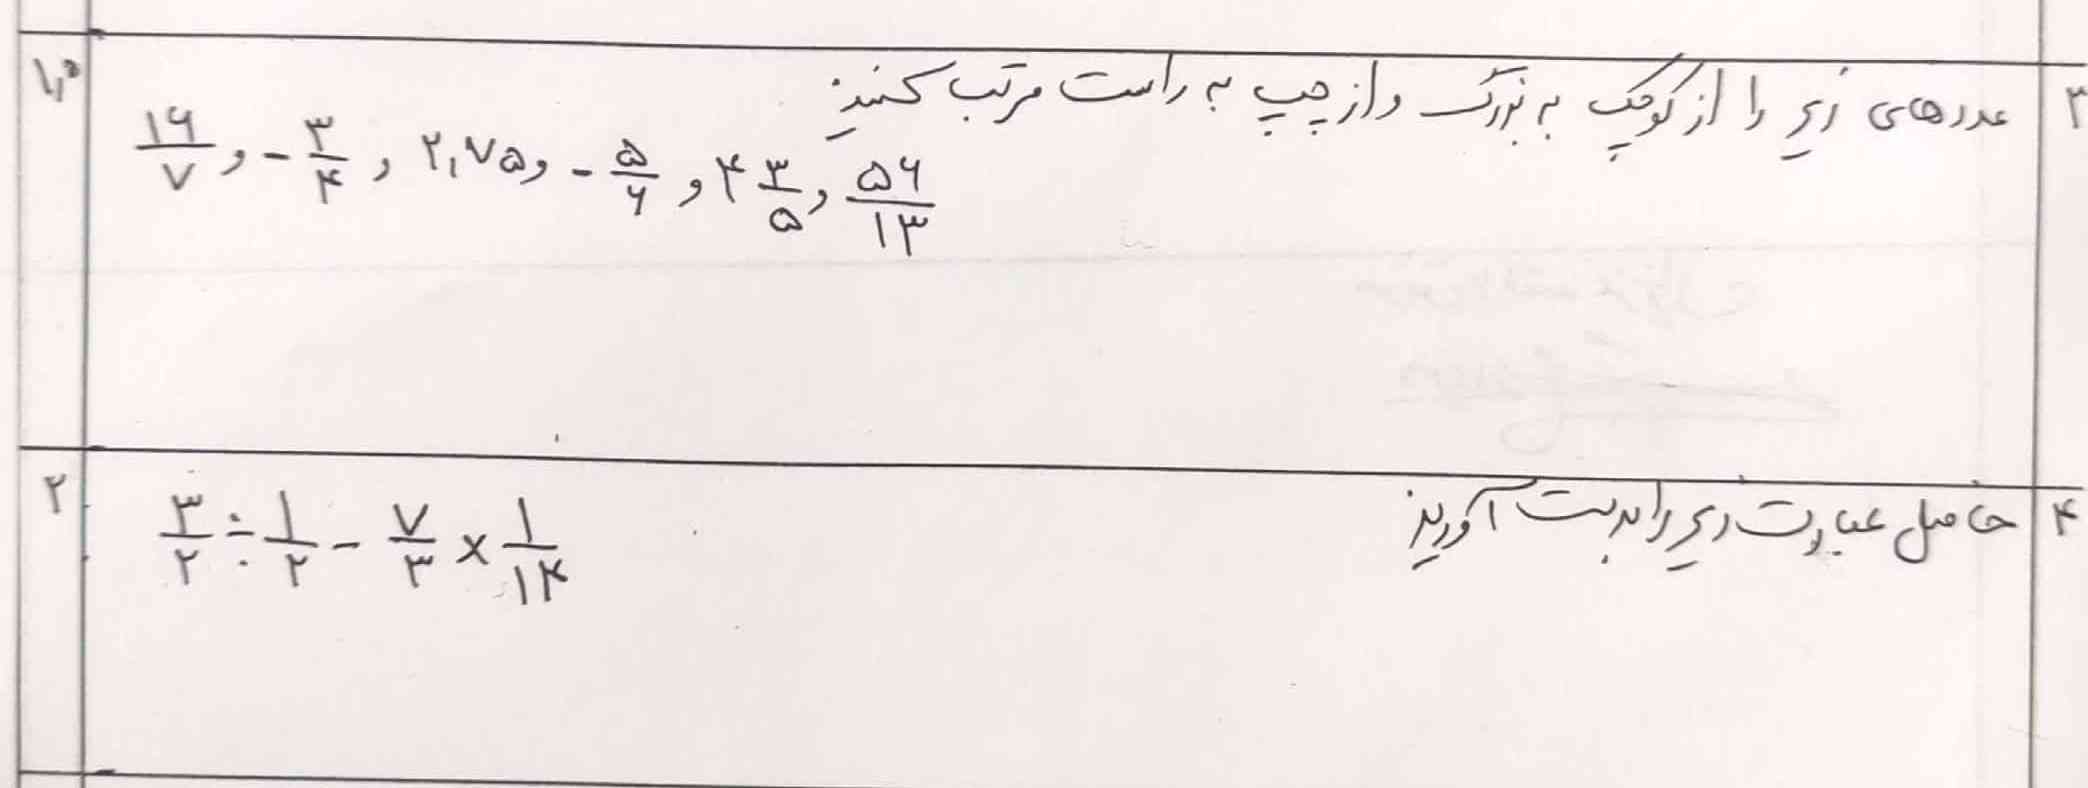 ۳ عددهای زیر را از کوچک به بزرگ و از چپ به راست مرتب کنید:
۱۶/۷ و -۳/۴ و ۲,۷۵ و -۵/۶ و ۴ ۳/۵ و ۵۶/۱۳
۴ حاصل عبارت زیر را بدست آورید ۲
۳/۲ ÷ ۱/۲ - ۷/۳ × ۱/۱۴